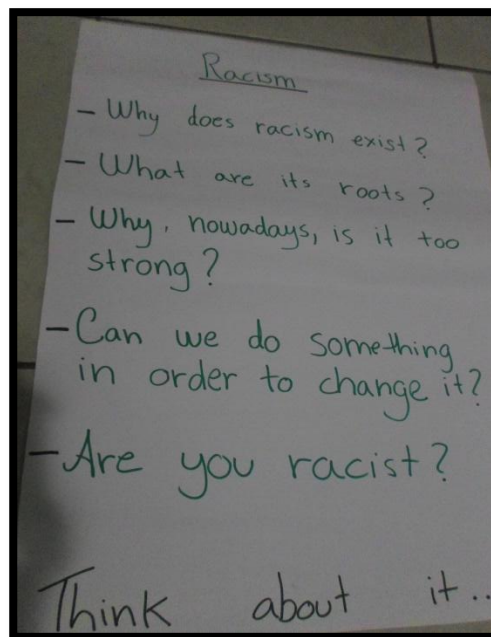 Racism
- Why does racism exist?
- What are its roots?
- Why, nowadays, is it too
strong?
- Can we do something
in order to change it?
- Are you racist?
Think about it..